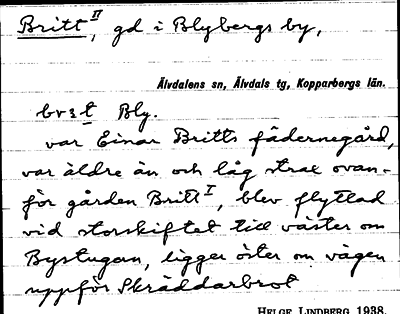 Britt II, gd i Blybergs by,
Älvdalens sn, Älvdals tg, Kopparbergs län.
bvst Bly.
var Einar Britts fädernegård,
var äldre än och låg strax ovan-
för gården Britt I, blev flyttad
vid storskiftet till väster om
Bystugan, ligger öster om vägen
uppför Skräddarbrot
HELGE LINDBERG 1938.